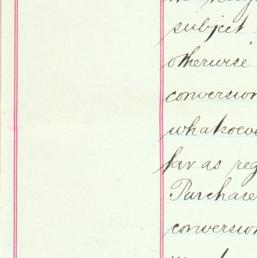 subject
otherwise
conversion
whatsoeve
far as reg
Purchase
conversion